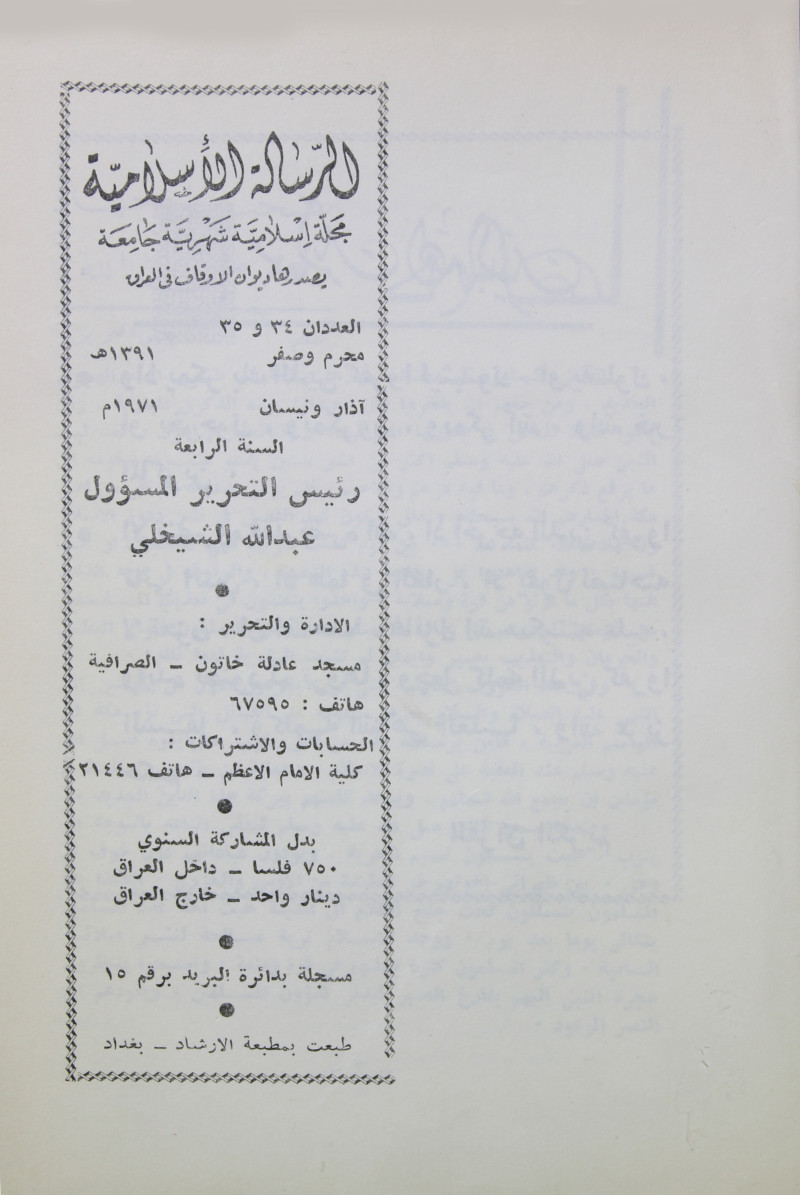 الرسالة الأسلامية
مجلة إسلامية شهرية جامعة
يصدرها ديوان الاوقاف في العراق
العددان ٣٤ و ٣٥
محرم وصفر ١٣٩١هـ
آذار ونيسان ١٩٧١م
السنة الرابعة
رئيس التحرير المسؤول
عبدالله الشيخلي
الادارة والتحرير :
مسجد عادلة خاتون ــ الصرافية
هاتف : ٦٧٥٩٥
الحسابات والاشتراكات :
كلية الامام الاعظم ــ هاتف ٢١٤٤٦
بدل المشاركة السنوي
٧٥٠ فلسا ــ داخل العراق
دينار واحد ــ خارج العراق
مسجلة بدائرة البريد برقم ١٥
طبعت بمطبعة الارشاد ــ بغداد